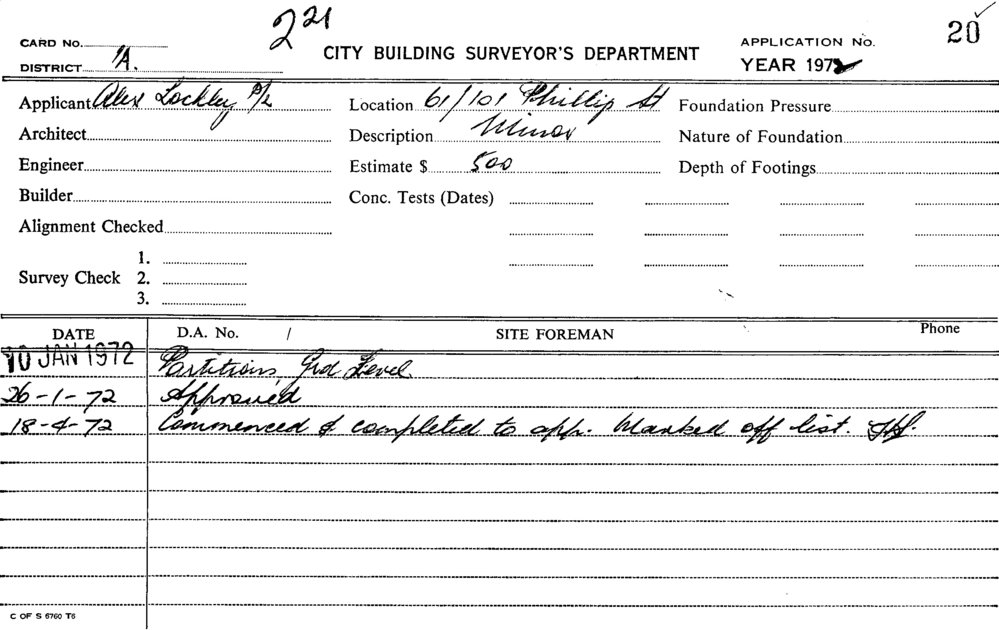 221
20 ✓
CARD No.
CITY BUILDING SURVEYOR'S DEPARTMENT
APPLICATION No.
DISTRICT 'A.
YEAR 1972
Applicant Alex Lockley P/L
Location 61/101 Phillip St
Foundation Pressure
Architect
Description Minor
Nature of Foundation
Engineer
Estimate $ 500
Depth of Footings
Builder
Conc. Tests (Dates)
Alignment Checked
1.
Survey Check 2.
3.
DATE D.A. No. / SITE FOREMAN Phone
10 JAN 1972 Partitions, Grd Level.
26-1-72 Approved
18-4-72 Commenced & completed to app. Marked off list.
C OF S 6760 T6